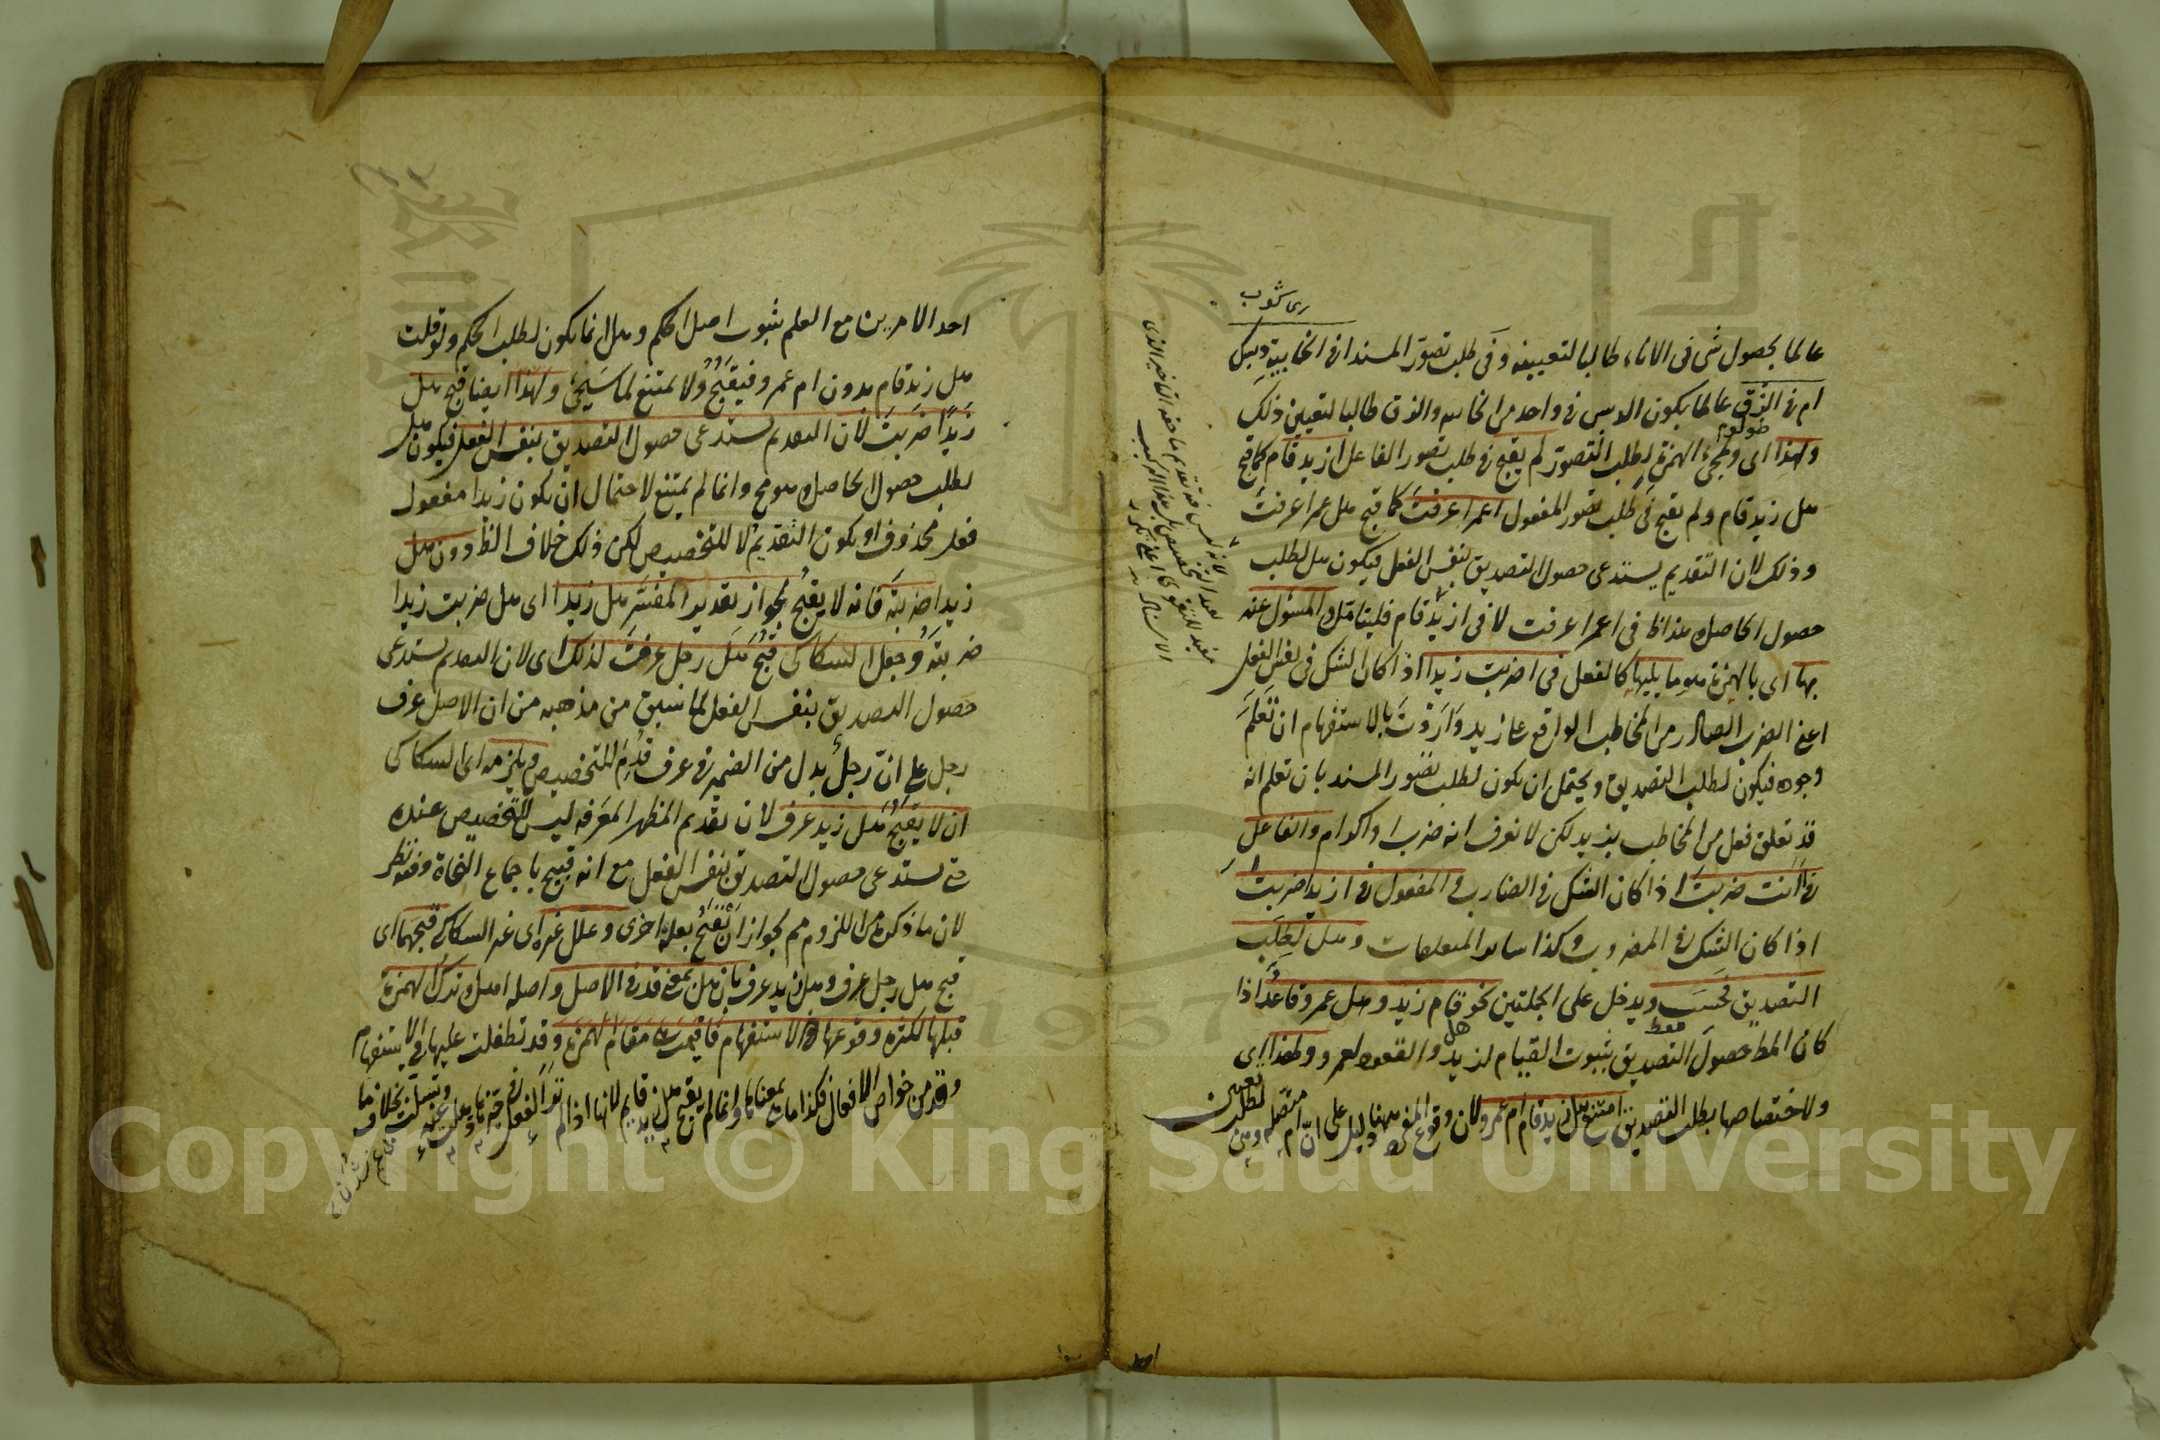 عالما بحصول شئ فى الاناء طالبا لتعيينه وفى طلب تصور المسند افى الخابية دبسك
ام فى الزق عالما بكون الدبس فى واحد من الخابيه والزق طالبا لتعيين ذلك
ولهذا اى ولمجئ الهمزة لطلب التصور لم يقبح فى طلب تصور الفاعل ازيد قام كما قبح
هل زيد قام ولم يقبح فى طلب تصور المفعول اعمرا عرفت كما قبح هل عمرا عرفت
وذلك لان التقديم يستدعى حصول التصديق بنفس الفعل فيكون هل لطلب
حصول الحاصل وهذا ظ فى اعمرا عرفت لا فى ازيد قام فليتامل والمسئول عنه
بها اى بالهمزة هو ما يليها كالفعل فى اضربت زيدا اذا كان الشك فى نفس الفعل
اعنى الضرب الصادر من المخاطب الواقع على زيد واردت بالاستفهام ان تعلم
وجوده فيكون لطلب التصديق ويحتمل ان يكون لطلب تصور المسند بان تعلم انه
قد تعلق فعل من المخاطب بزيد لكن لا تعرف انه ضرب او اكرام والفاعل
فى اانت ضربت اذا كان الشك فى الضارب والمفعول فى ازيدا ضربت
اذا كان الشك فى المضروب وكذا سائر المتعلقات وهل لطلب
التصديق فحسب ويدخل على الجملتين نحو هل قام زيد وهل عمرو قاعد اذا
كان المط حصول التصديق بثبوت القيام لزيد والقعود لعمرو ولهذا اى
ولاختصاصها بطلب التصديق امتنع هل زيد قام ام عمرو لان وقوع المفرد ههنا دليل على ان ام متصله وهى لطلب تعيين
احد
احد الامرين مع العلم بثبوت اصل الحكم وهل انما يكون لطلب الحكم ولو قلت
هل زيد قام بدون ام عمرو فيقبح ولا يمتنع لما سيجئ ولهذا ايضا قبح هل
زيدا ضربت لان التقديم يستدعى حصول التصديق بنفس الفعل فيكون هل
لطلب حصول الحاصل وهو مح وانما لم يمتنع لاحتمال ان يكون زيدا مفعول
فعل محذوف او يكون التقديم لا للتخصيص لكن ذلك خلاف الظ دون هل
زيدا ضربته فانه لا يقبح لجواز تقدير المفسر هل زيدا اى هل ضربت زيدا
ضربته وجعل السكاكى قبح هل رجل عرف لذلك اى لان التقديم يستدعى
حصول التصديق بنفس الفعل لما سبق من مذهبه من ان الاصل عرف
رجل على ان رجل بدل من الضمير فى عرف قدم للتخصيص ويلزمه اى السكاكى
ان لا يقبح هل زيد عرف لان تقديم المظهر المعرفه ليس للتخصيص عنده
حتى يستدعى حصول التصديق بنفس الفعل مع انه قبيح باجماع النحاة وفيه نظر
لان ما ذكره من اللزوم مم لجواز ان يقبح بعلة اخرى وعلل غيره اى غير السكاكى قبحهما اى
قبح هل رجل عرف وهل زيد عرف بان هل بمعنى قد فى الاصل واصله اهل وترك الهمزة
قبلها لكثرة وقوعها فى الاستفهام فاقيمت هى مقام الهمزة وقد تطفلت عليها فى الاستفهام
وقد من خواص الافعال فكذا ما هى بمعناها وانما لم يقبح هل زيد قايم لانها اذا لم تر الفعل فى حيزها